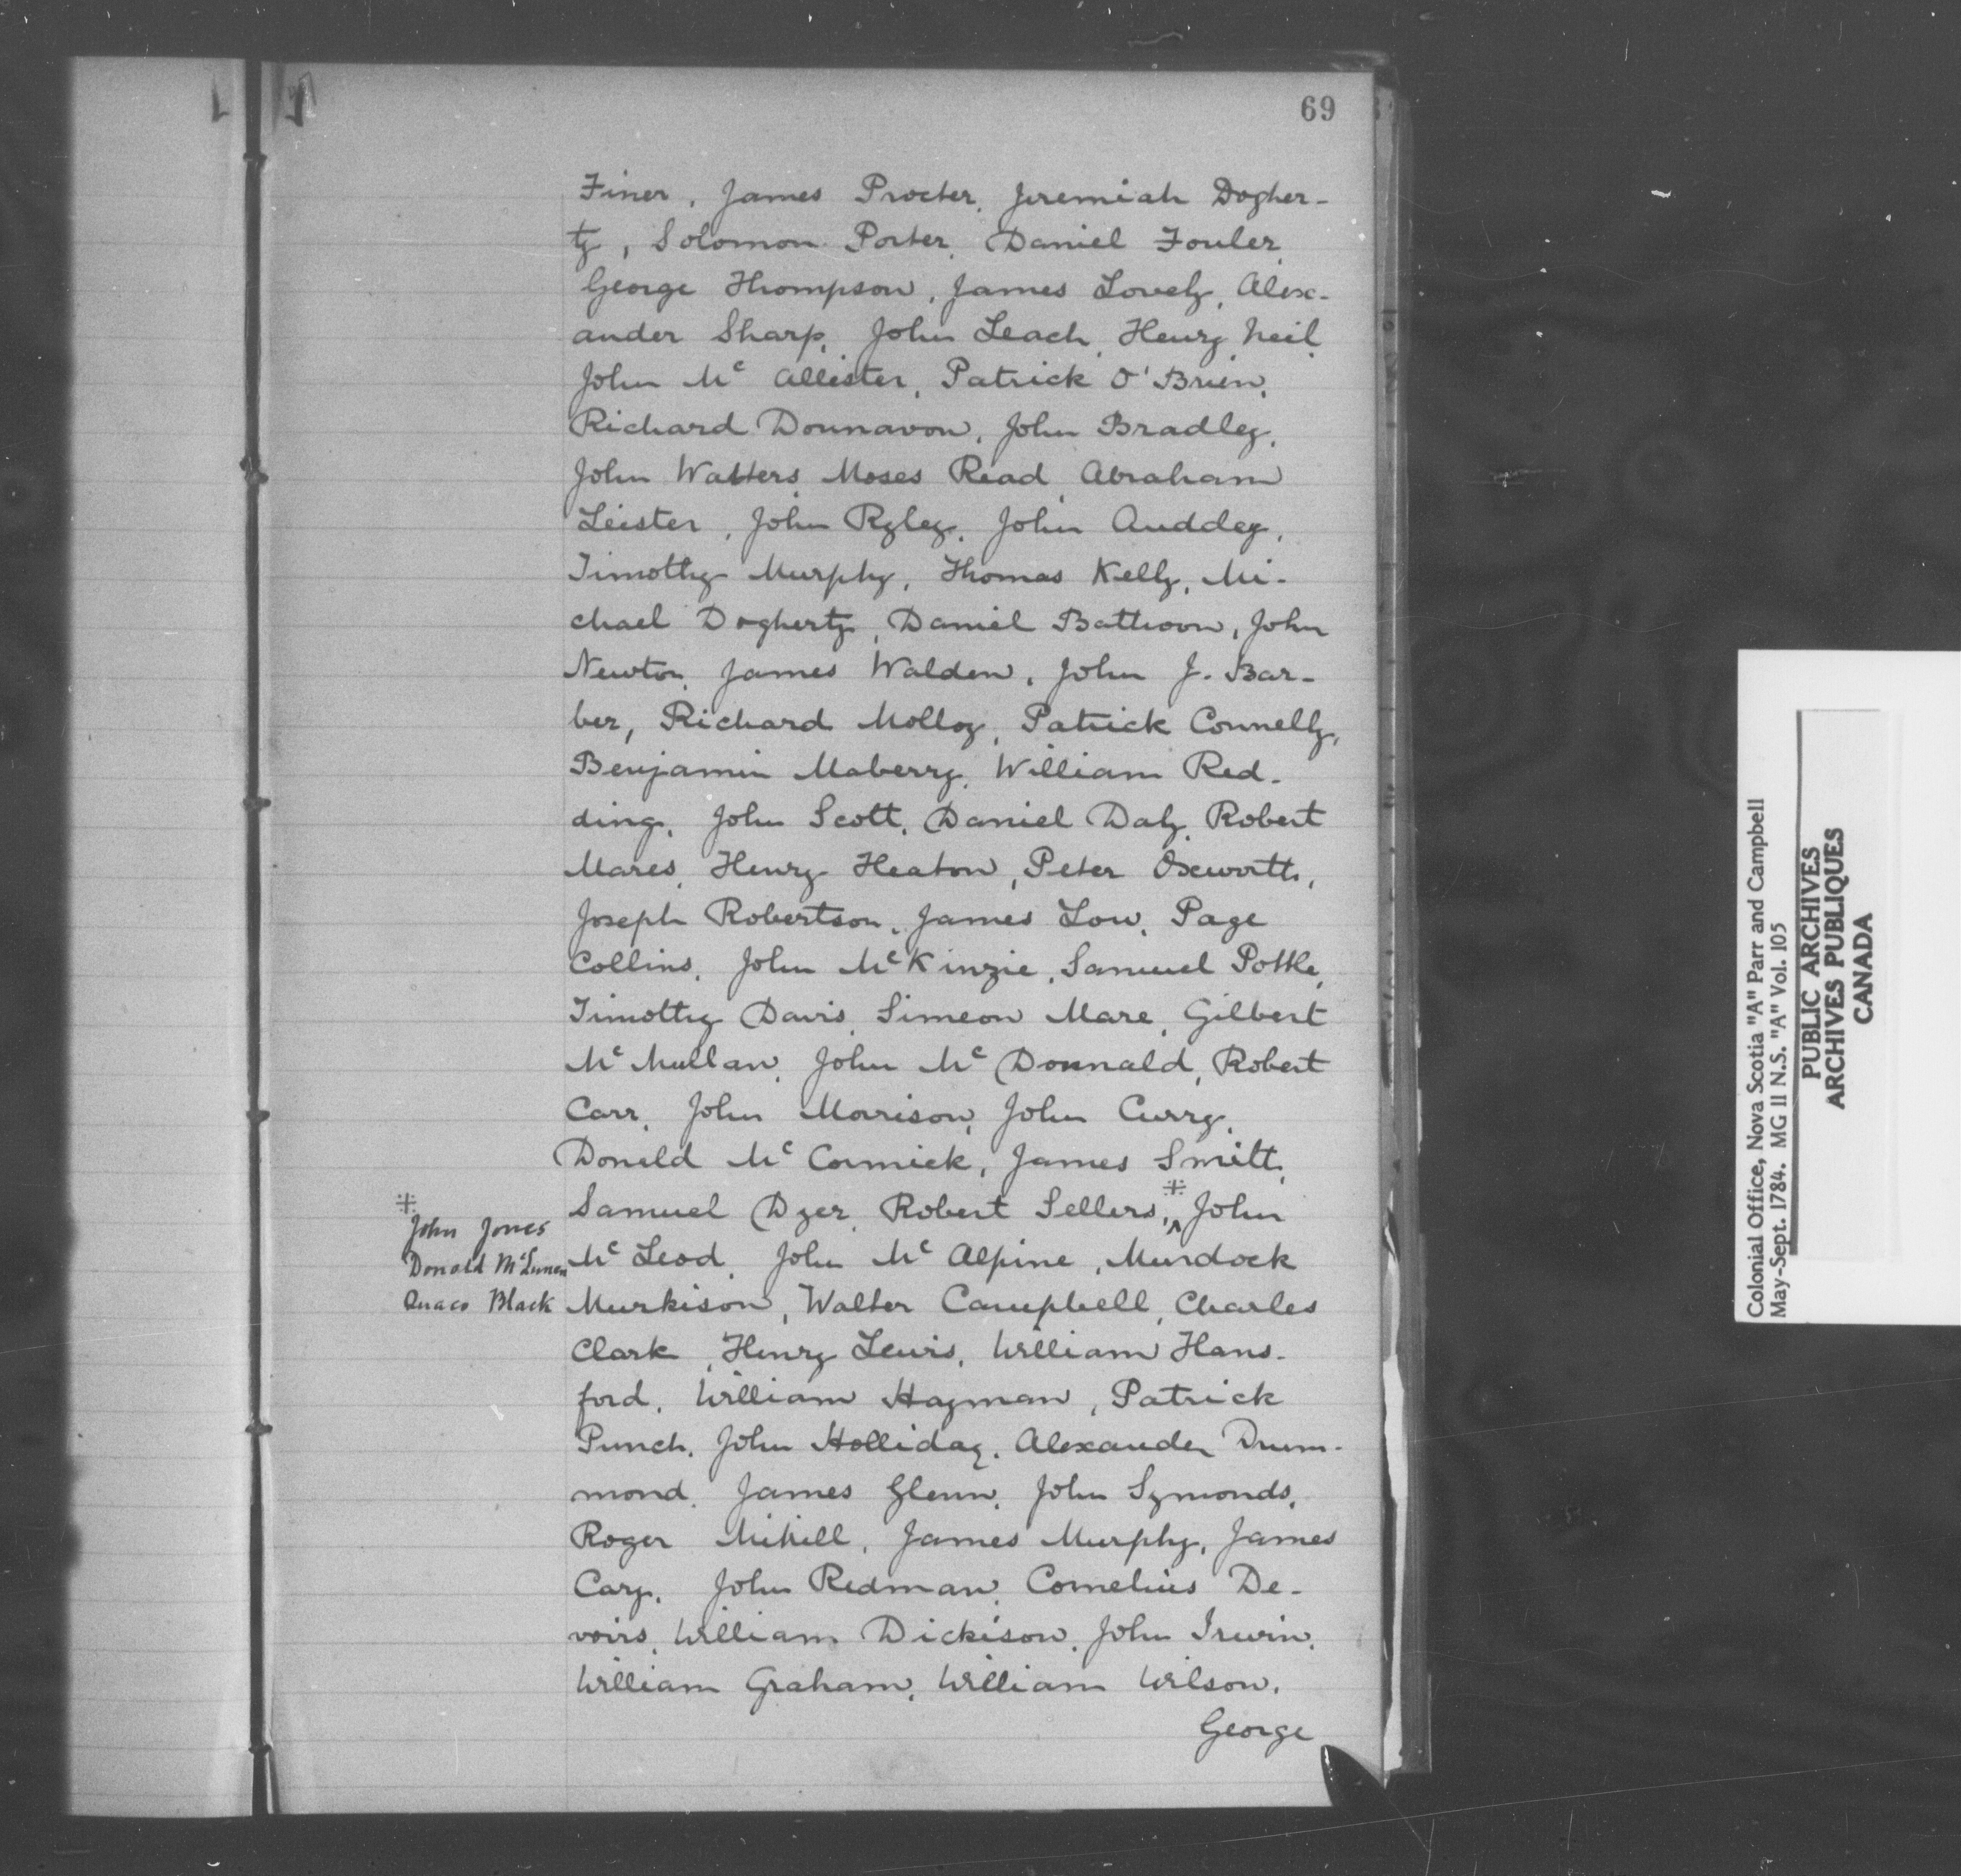 69
Finer, James Procter, Jeremiah Dogher-
ty, Solomon Porter, Daniel Fouler,
George Thompson, James Lovely, Alex-
ander Sharp, John Leach, Henry Neil,
John Mc Allister, Patrick O'Brien,
Richard Donnavon, John Bradley,
John Watters, Moses Read, Abraham
Leister, John Ryley, John Auddey,
Timothy Murphy, Thomas Kelly, Mi-
chael Dogherty, Daniel Bathoon, John
Newton, James Walden, John J. Bar-
ber, Richard Molloy, Patrick Connelly,
Benjamin Maberry, William Red-
ding, John Scott, Daniel Daly, Robert
Mares, Henry Heaton, Peter Oxeworth,
Joseph Robertson, James Low, Page
Collins, John McKinzie, Samuel Pottle,
Timothy Davis, Simeon Mare, Gilbert
Mc Mullan, John Mc Donnald, Robert
Carr, John Morrison, John Curry,
Donald Mc Cormick, James Smith,
Samuel Dyer, Robert Sellers, ※ John
※
John Jones
Donald McLunen
Quaco Black
Mc Leod, John Mc Alpine, Murdock
Murkison, Walter Campbell, Charles
Clark, Henry Lewis, William Hans-
ford, William Hayman, Patrick
Punch, John Holliday, Alexander Drum-
mond, James Glenn, John Symonds,
Roger Mihill, James Murphy, James
Cary, John Redman, Cornelius De-
voirs, William Dickison, John Irwin,
William Graham, William Wilson,
George
Colonial Office, Nova Scotia "A" Parr and Campbell
May-Sept. 1784. MG 11 N.S. "A" Vol. 105
PUBLIC ARCHIVES
ARCHIVES PUBLIQUES
CANADA